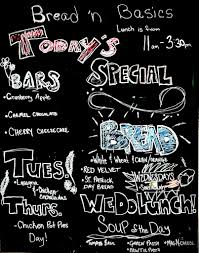 Bread 'n Basics
Lunch is from
11am - 3:30pm
Today's
Special
Bars
• Cranberry Apple
• Caramel Chocolate
• Cherry Cheesecake
Bread
• White & Wheat
• Red Velvet
• St. Patrick Day Bread
Tues!
• Lasagna
Wednesdays
Thurs.
• Chicken Pot Pies
Day!
We Do Lunch!
Soup of the Day
Tomato Basil